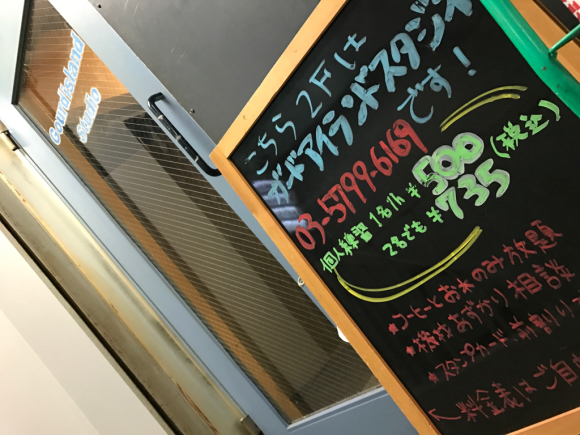 Gateisland
studio
こちら2Fは
ガボアイランドスタジオ
です!
03-5799-6169
個人練習 1名1h ¥500
2名でも ¥735 (税込)
★コーヒーとお水のみ放題
★機材おあずかり相談
★スタンプカード
料金表はご自